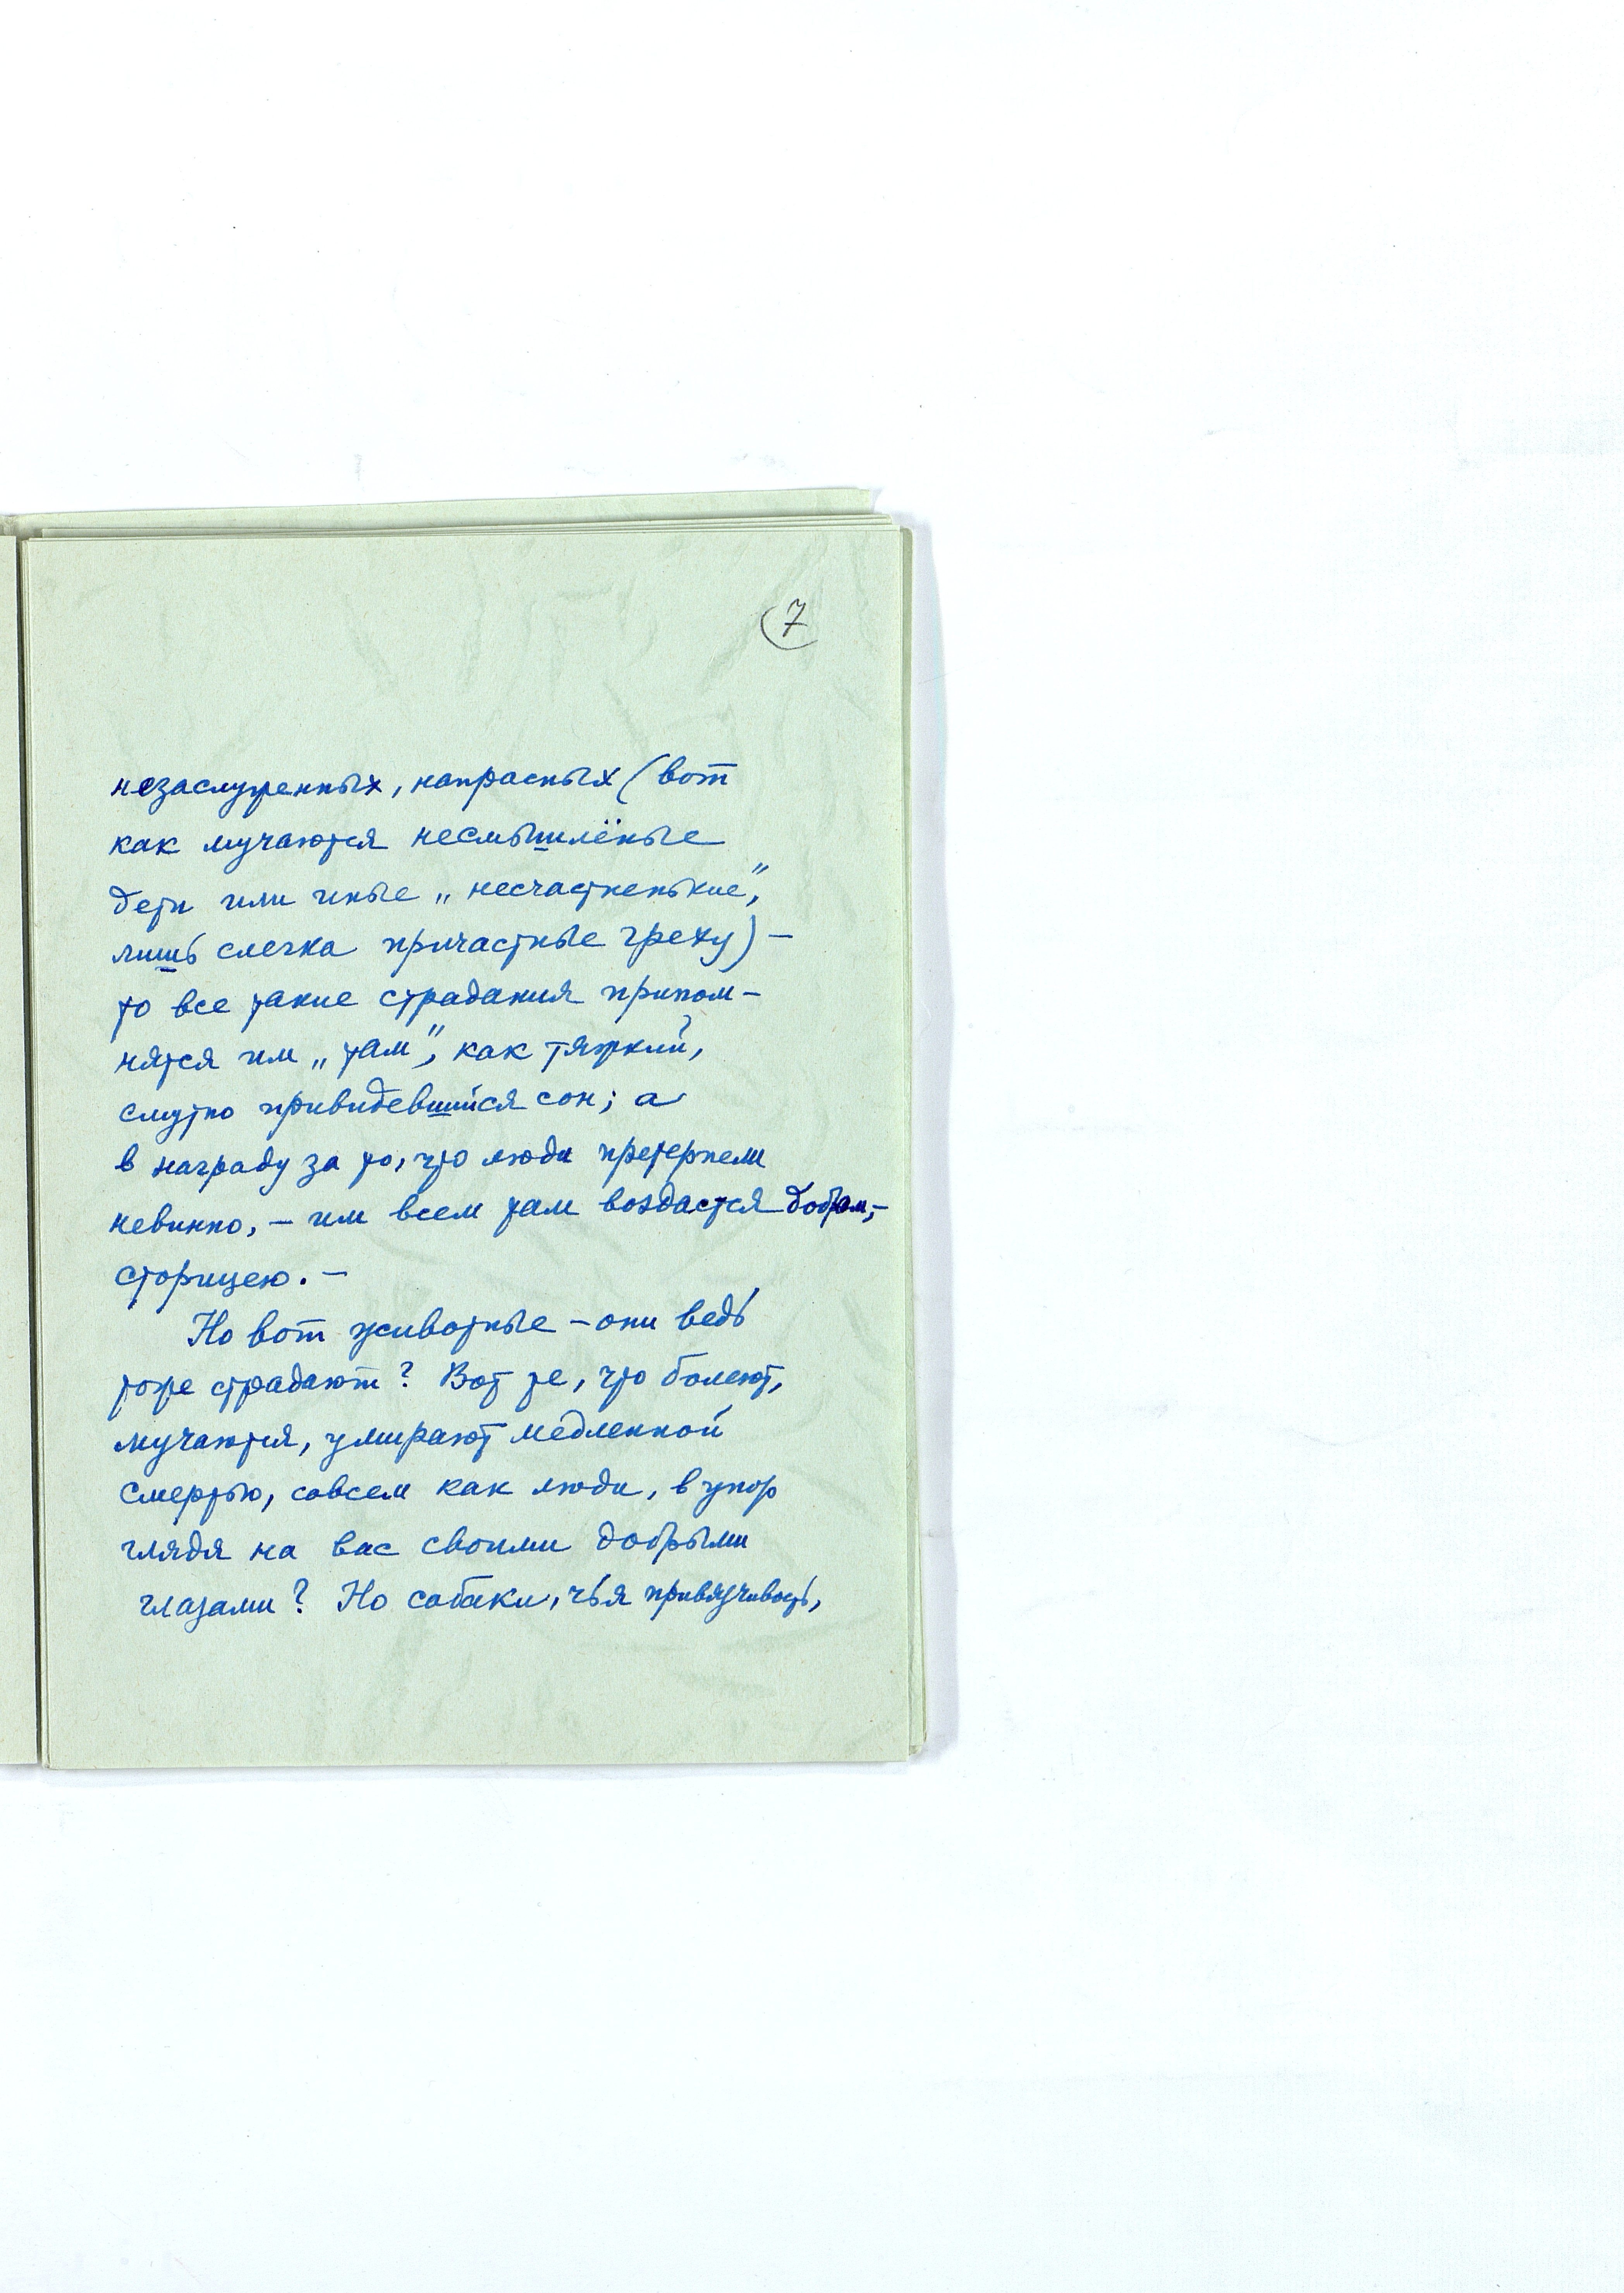 7
незаслуженных, напрасных (вот
как мучаются несмышлёные
дети или иные „несчастненькие",
лишь слегка причастные греху) —
то все такие страдания припом-
нятся им „там", как тяжкий,
смутно привидевшийся сон; а
в награду за то, что люди претерпели
невинно, — им всем там воздастся добром, —
сторицею. —
Но вот животные — они ведь
тоже страдают? Вот те, что болеют,
мучаются, умирают медленной
смертью, совсем как люди, в упор
глядя на вас своими добрыми
глазами? Но собаки, чья привязчивость,